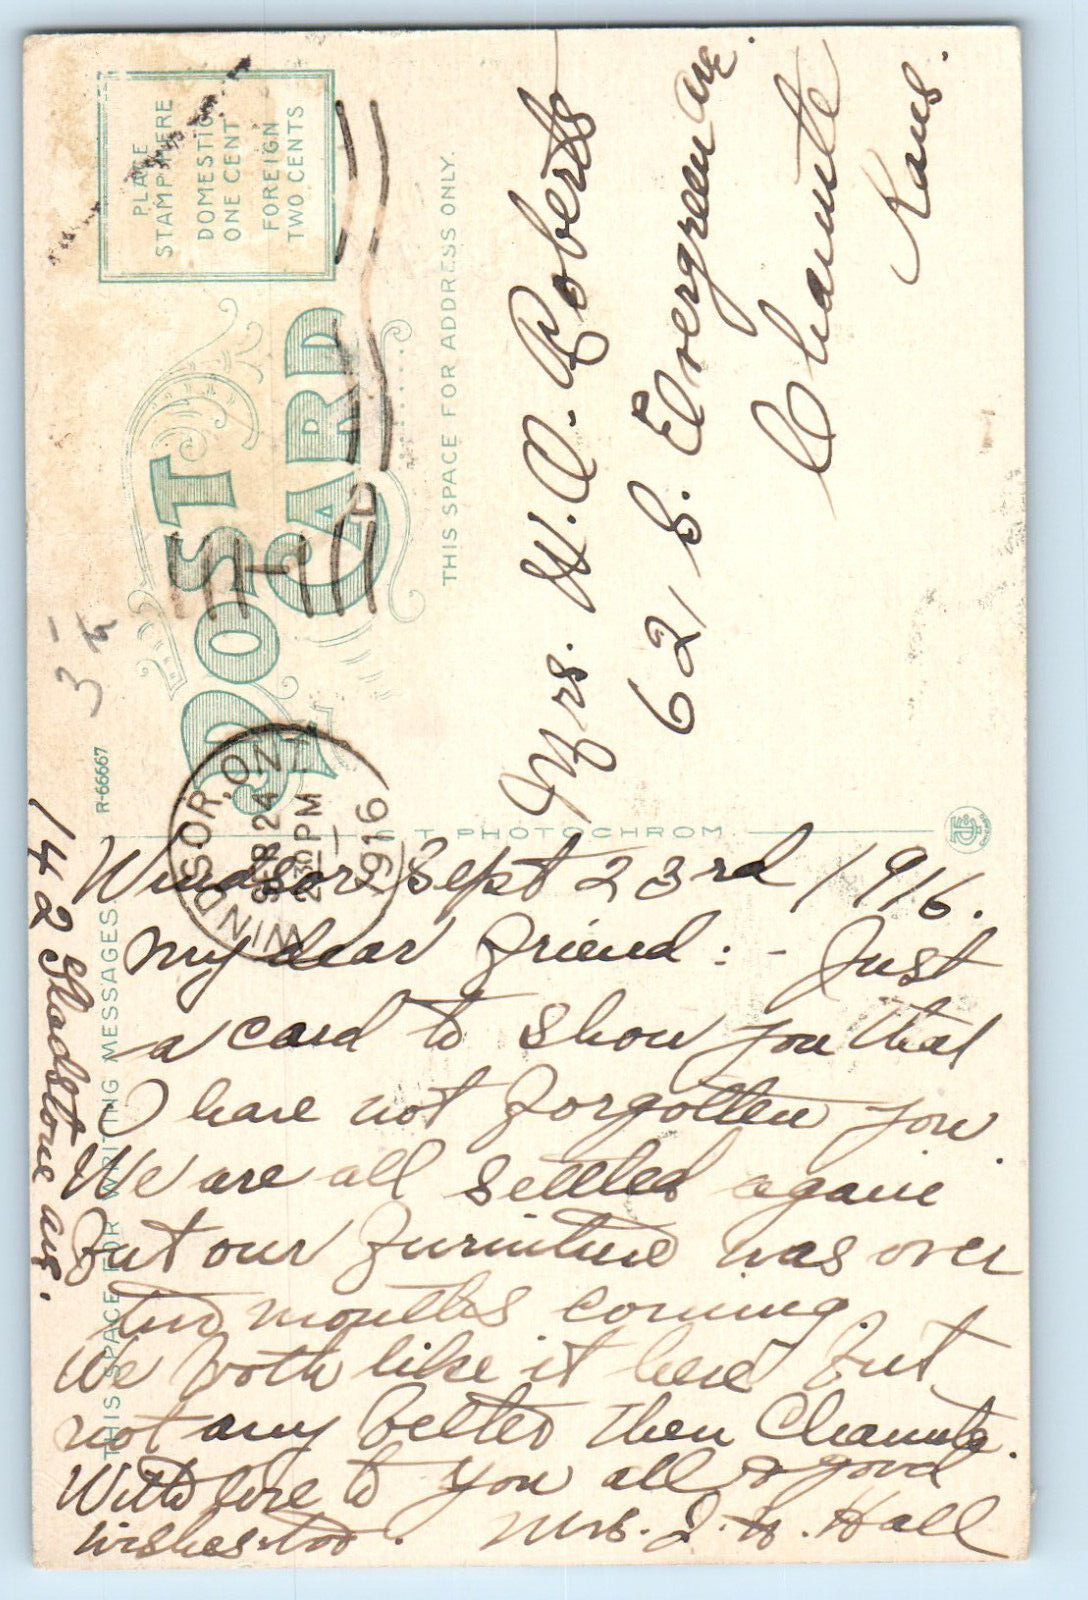 PLACE
STAMP HERE
DOMESTIC
ONE CENT
FOREIGN
TWO CENTS
POST
CARD
THIS SPACE FOR ADDRESS ONLY.
Mrs. W. A. Roberts
621 S. Evergreen ave.
Chanute
Kans.
R-66667
WINDSOR, ON
SEP 24
2 30 PM
1916
PHOTOCHROM
THIS SPACE FOR WRITING MESSAGES.
142 Gladstone ave.
Windsor Sept 23rd 1916.
My dear friend: - Just
a card to show you that
I have not forgotten you.
We are all settled again
but our furniture was over
two months coming.
We both like it here but
not any better then Chanute.
With love to you all & good
wishes too. Mrs. J. H. Hall